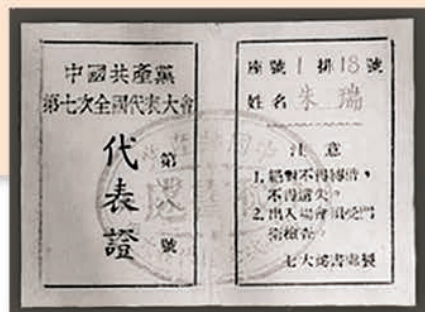 中國共產黨
第七次全國代表大會
代表證
第
號
座號 1 排 18 號
姓名 朱瑞
注意
1. 絕對不得轉借，
不得遺失。
2. 出入場會須受門
衛檢查。
七大秘書處製